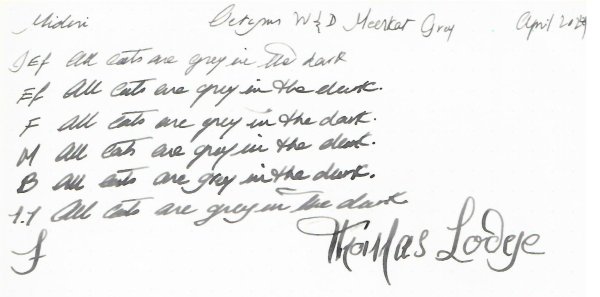 Midori Octopus W & D Meerkat Grey April 2024
JEf All Cats are grey in the dark
Ef All Cats are grey in the dark.
F All Cats are grey in the dark.
M All Cats are grey in the dark.
B All Cats are grey in the dark.
1.1 All Cats are grey in the dark
f Thomas Lodge